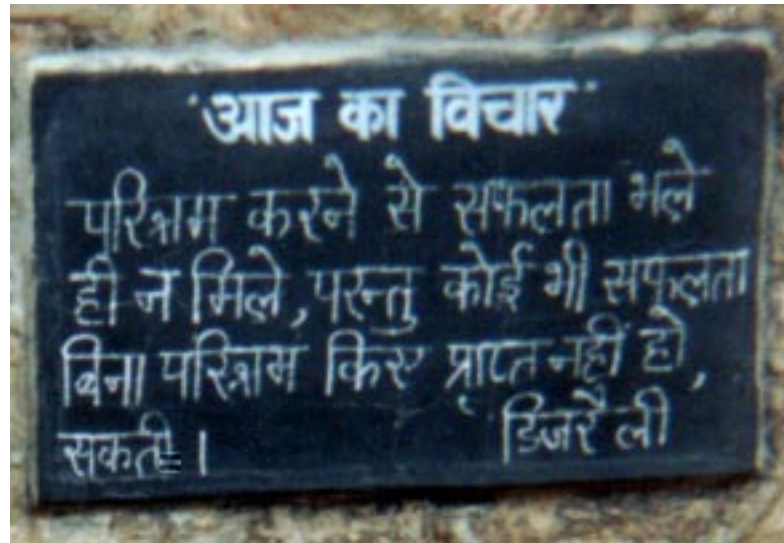 'आज का विचार'
परिश्रम करने से सफलता भले
ही न मिले, परन्तु कोई भी सफलता
बिना परिश्रम किए प्राप्त नहीं हो,
सकती।
डिजरैली